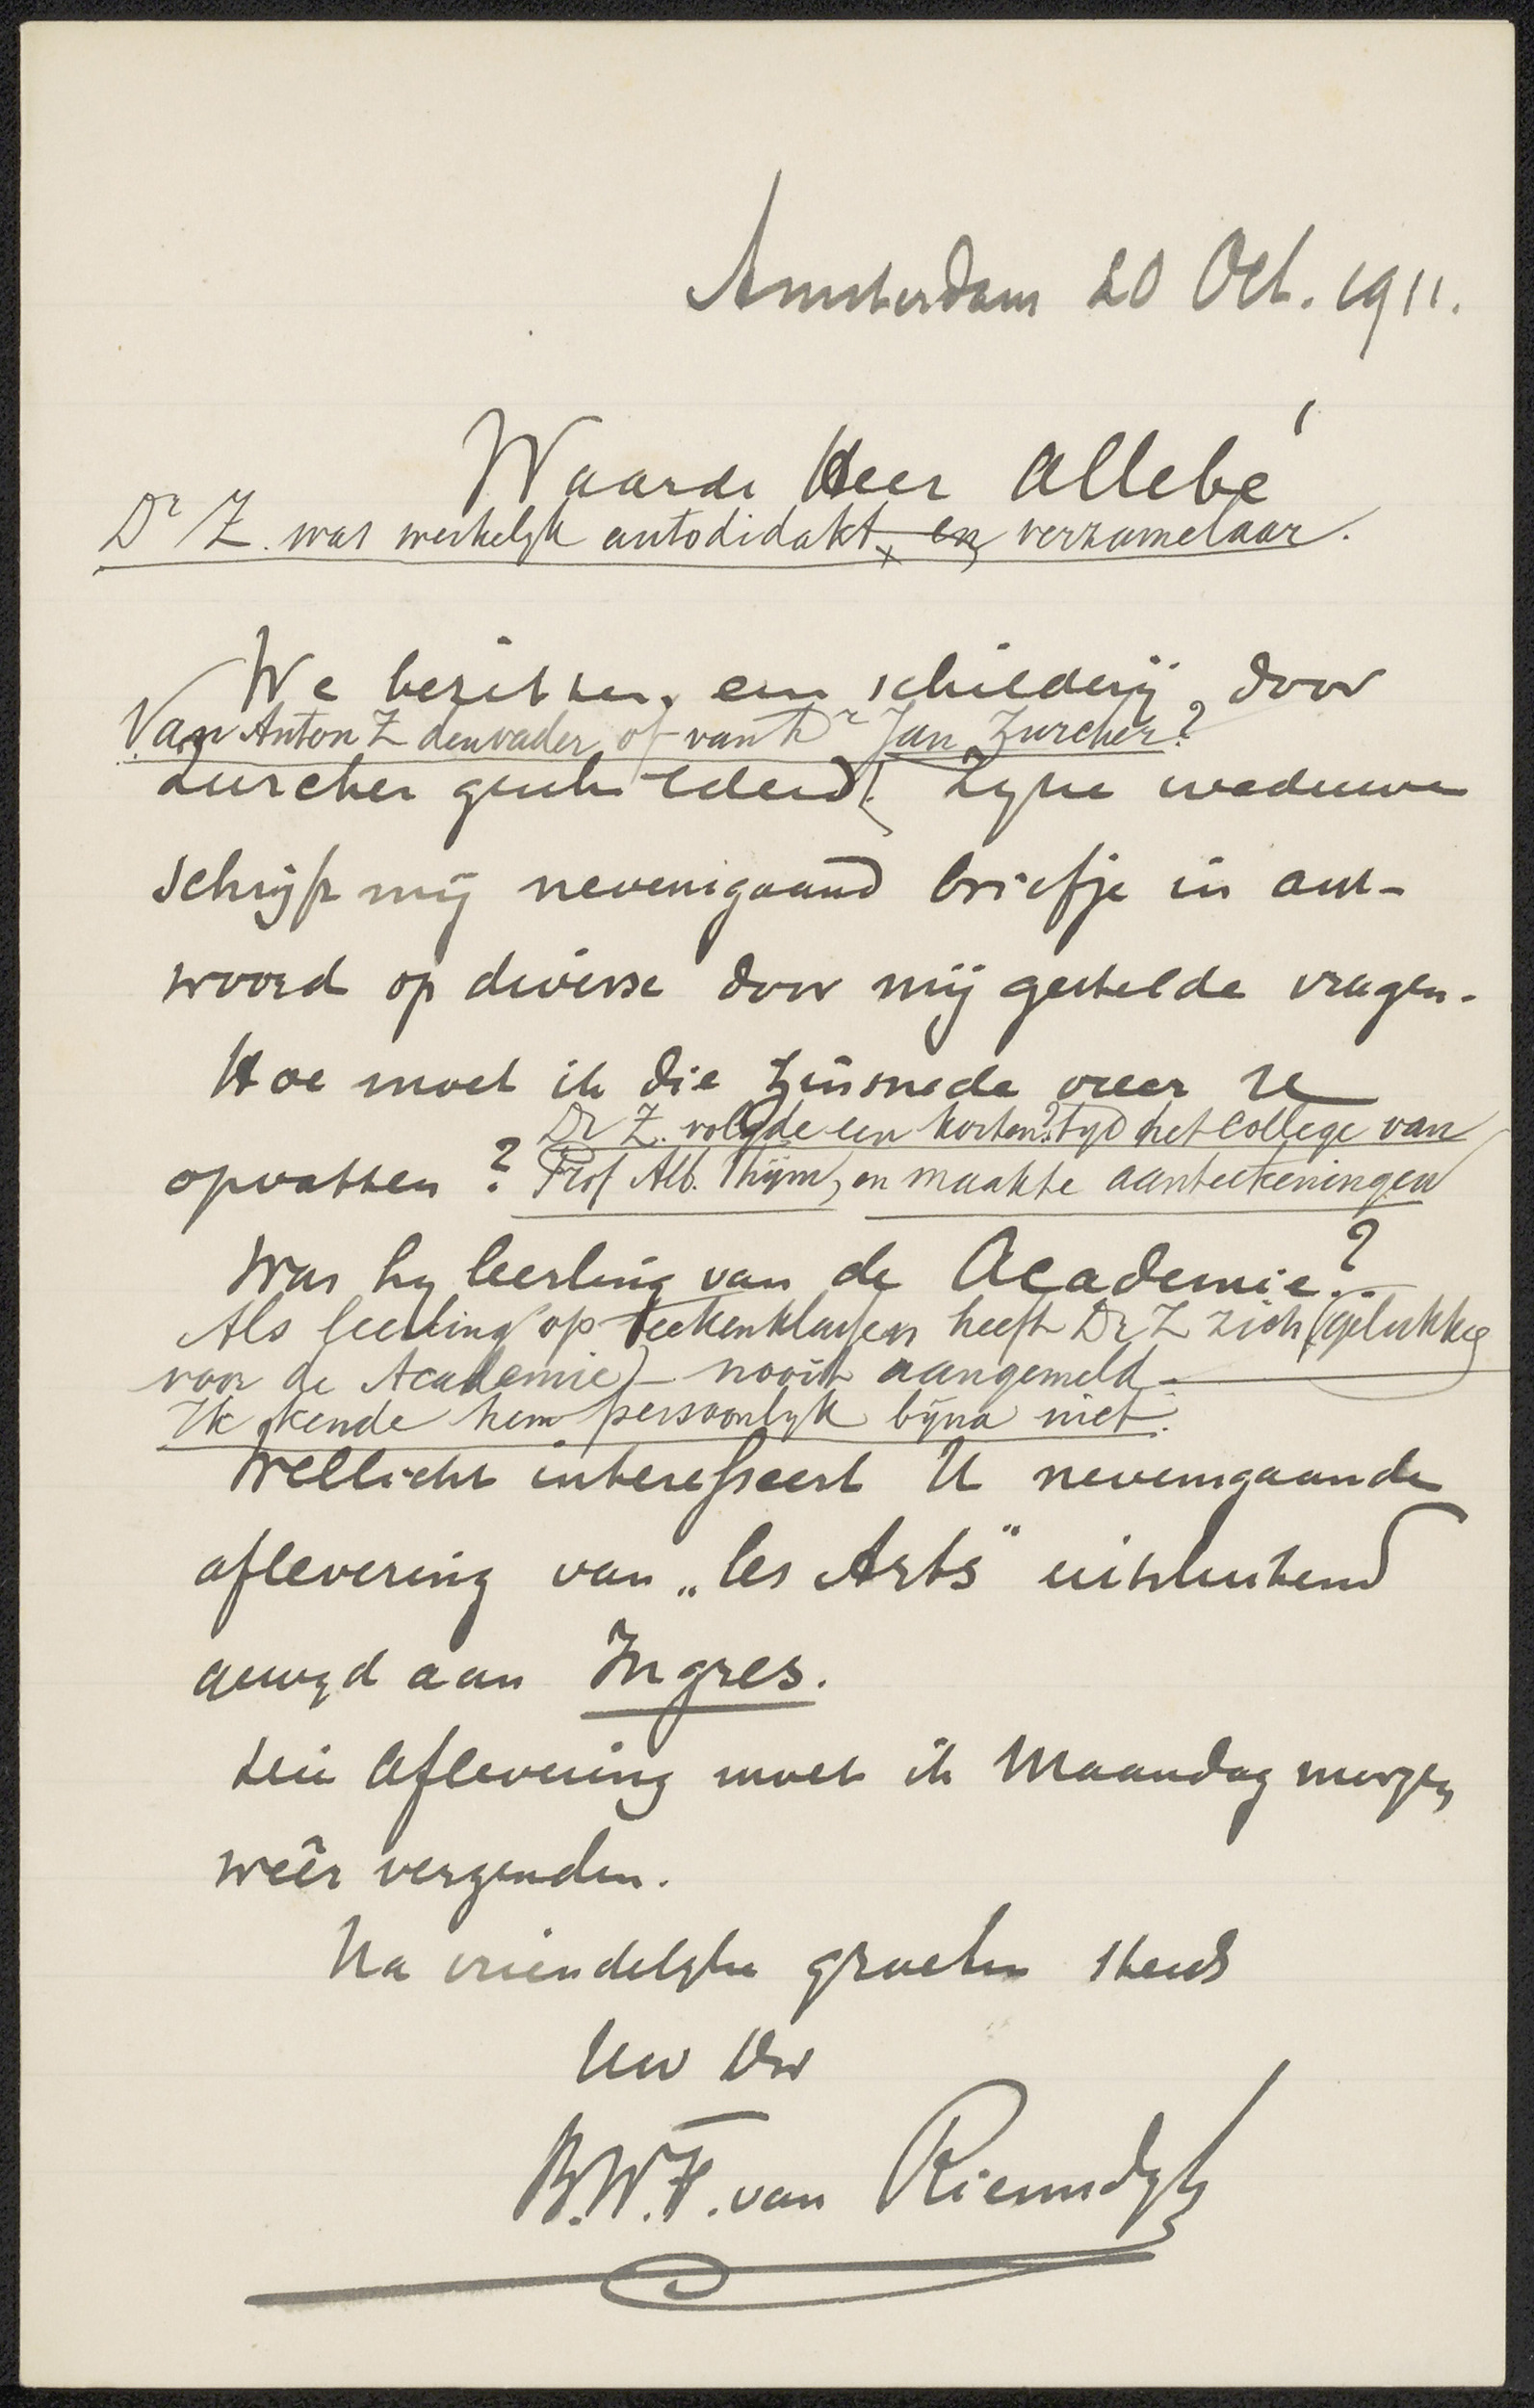 Amsterdam 20 Oct. 1911.
Waarde Heer Allebé
Dr Z. was werkelyk autodidakt, en verzamelaar.
We bezitten een schilderij, door
Van Anton Z den vader of van Dr Jan Zurcher?
Zurcher geschilderd. Zyne weduwe
schrijft mij nevensgaand briefje in ant-
woord op diverse door mij gestelde vragen.
Hoe moet ik die zinsnede over U
Dr Z. volgde een korten? tyd het college van
opvatten? Prof Alb. Thijm, en maakte aanteekeningen
Was hy leerling van de Academie?
Als leerling op teekenklassen heeft Dr Z zich (gelukkig
voor de Academie) – nooit aangemeld –
Ik kende hem persoonlyk byna niet.
Wellicht interesseert U nevensgaande
aflevering van „les Arts" uitsluitend
gewyd aan Ingres.
Die aflevering moet ik Maandag morgen
weêr verzenden.
Na vriendelyke groeten steeds
Uw Dw
B.W.F. van Riemsdyk